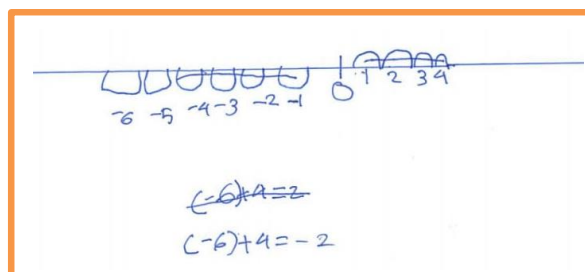 -6 -5 -4 -3 -2 -1 0 1 2 3 4
(-6)+4=2
(-6)+4=-2